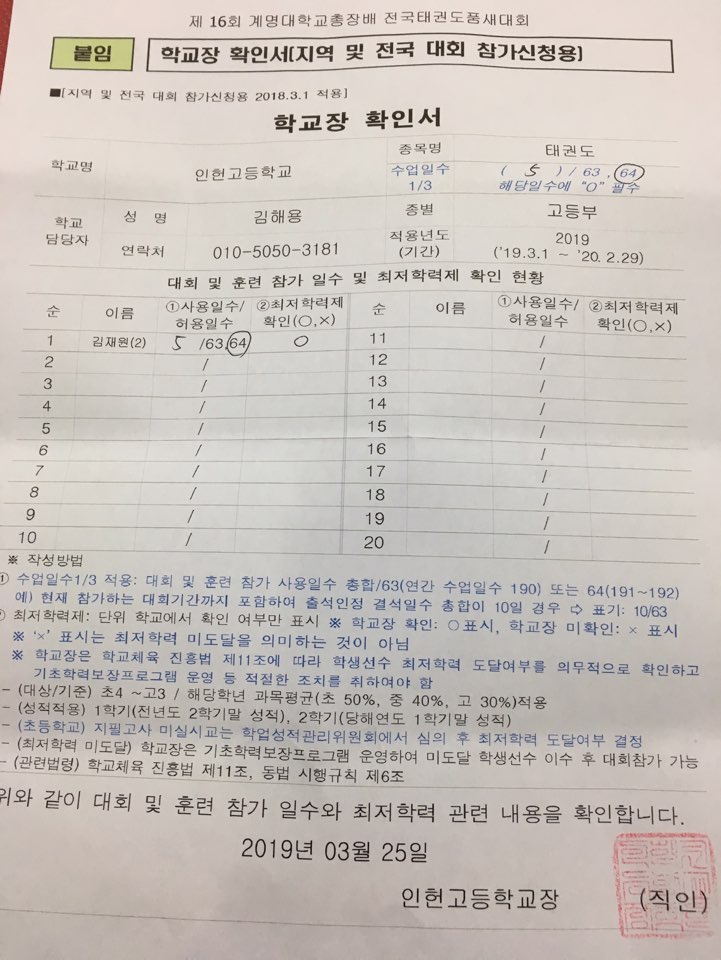 제 16회 계명대학교총장배 전국태권도품새대회
붙임 학교장 확인서(지역 및 전국 대회 참가신청용)
■[지역 및 전국 대회 참가신청용 2018.3.1 적용]
학교장 확인서
학교명 인헌고등학교 종목명 태권도
수업일수 1/3 ( 5 ) / 63, 64
해당일수에 "O" 필수
학교 담당자 성 명 김해용 종별 고등부
연락처 010-5050-3181 적용년도 (기간) 2019
('19.3.1 ~ '20.2.29)
대회 및 훈련 참가 일수 및 최저학력제 확인 현황
순 이름 ①사용일수/허용일수 ②최저학력제 확인(○,×) 순 이름 ①사용일수/허용일수 ②최저학력제 확인(○,×)
1 김재원(2) 5 /63,64 ○ 11 /
2 / 12 /
3 / 13 /
4 / 14 /
5 / 15 /
6 / 16 /
7 / 17 /
8 / 18 /
9 / 19 /
10 / 20 /
※ 작성방법
① 수업일수1/3 적용: 대회 및 훈련 참가 사용일수 총합/63(연간 수업일수 190) 또는 64(191~192)
예) 현재 참가하는 대회기간까지 포함하여 출석인정 결석일수 총합이 10일 경우 ⇨ 표기: 10/63
② 최저학력제: 단위 학교에서 확인 여부만 표시 ※ 학교장 확인: ○표시, 학교장 미확인: × 표시
※ '×' 표시는 최저학력 미도달을 의미하는 것이 아님
※ 학교장은 학교체육 진흥법 제11조에 따라 학생선수 최저학력 도달여부를 의무적으로 확인하고
기초학력보장프로그램 운영 등 적절한 조치를 취하여야 함
- (대상/기준) 초4 ~고3 / 해당학년 과목평균(초 50%, 중 40%, 고 30%)적용
- (성적적용) 1학기(전년도 2학기말 성적), 2학기(당해연도 1학기말 성적)
- (초등학교) 지필고사 미실시교는 학업성적관리위원회에서 심의 후 최저학력 도달여부 결정
- (최저학력 미도달) 학교장은 기초학력보장프로그램 운영하여 미도달 학생선수 이수 후 대회참가 가능
- (관련법령) 학교체육 진흥법 제11조, 동법 시행규칙 제6조
위와 같이 대회 및 훈련 참가 일수와 최저학력 관련 내용을 확인합니다.
2019년 03월 25일
인헌고등학교장 (직인)